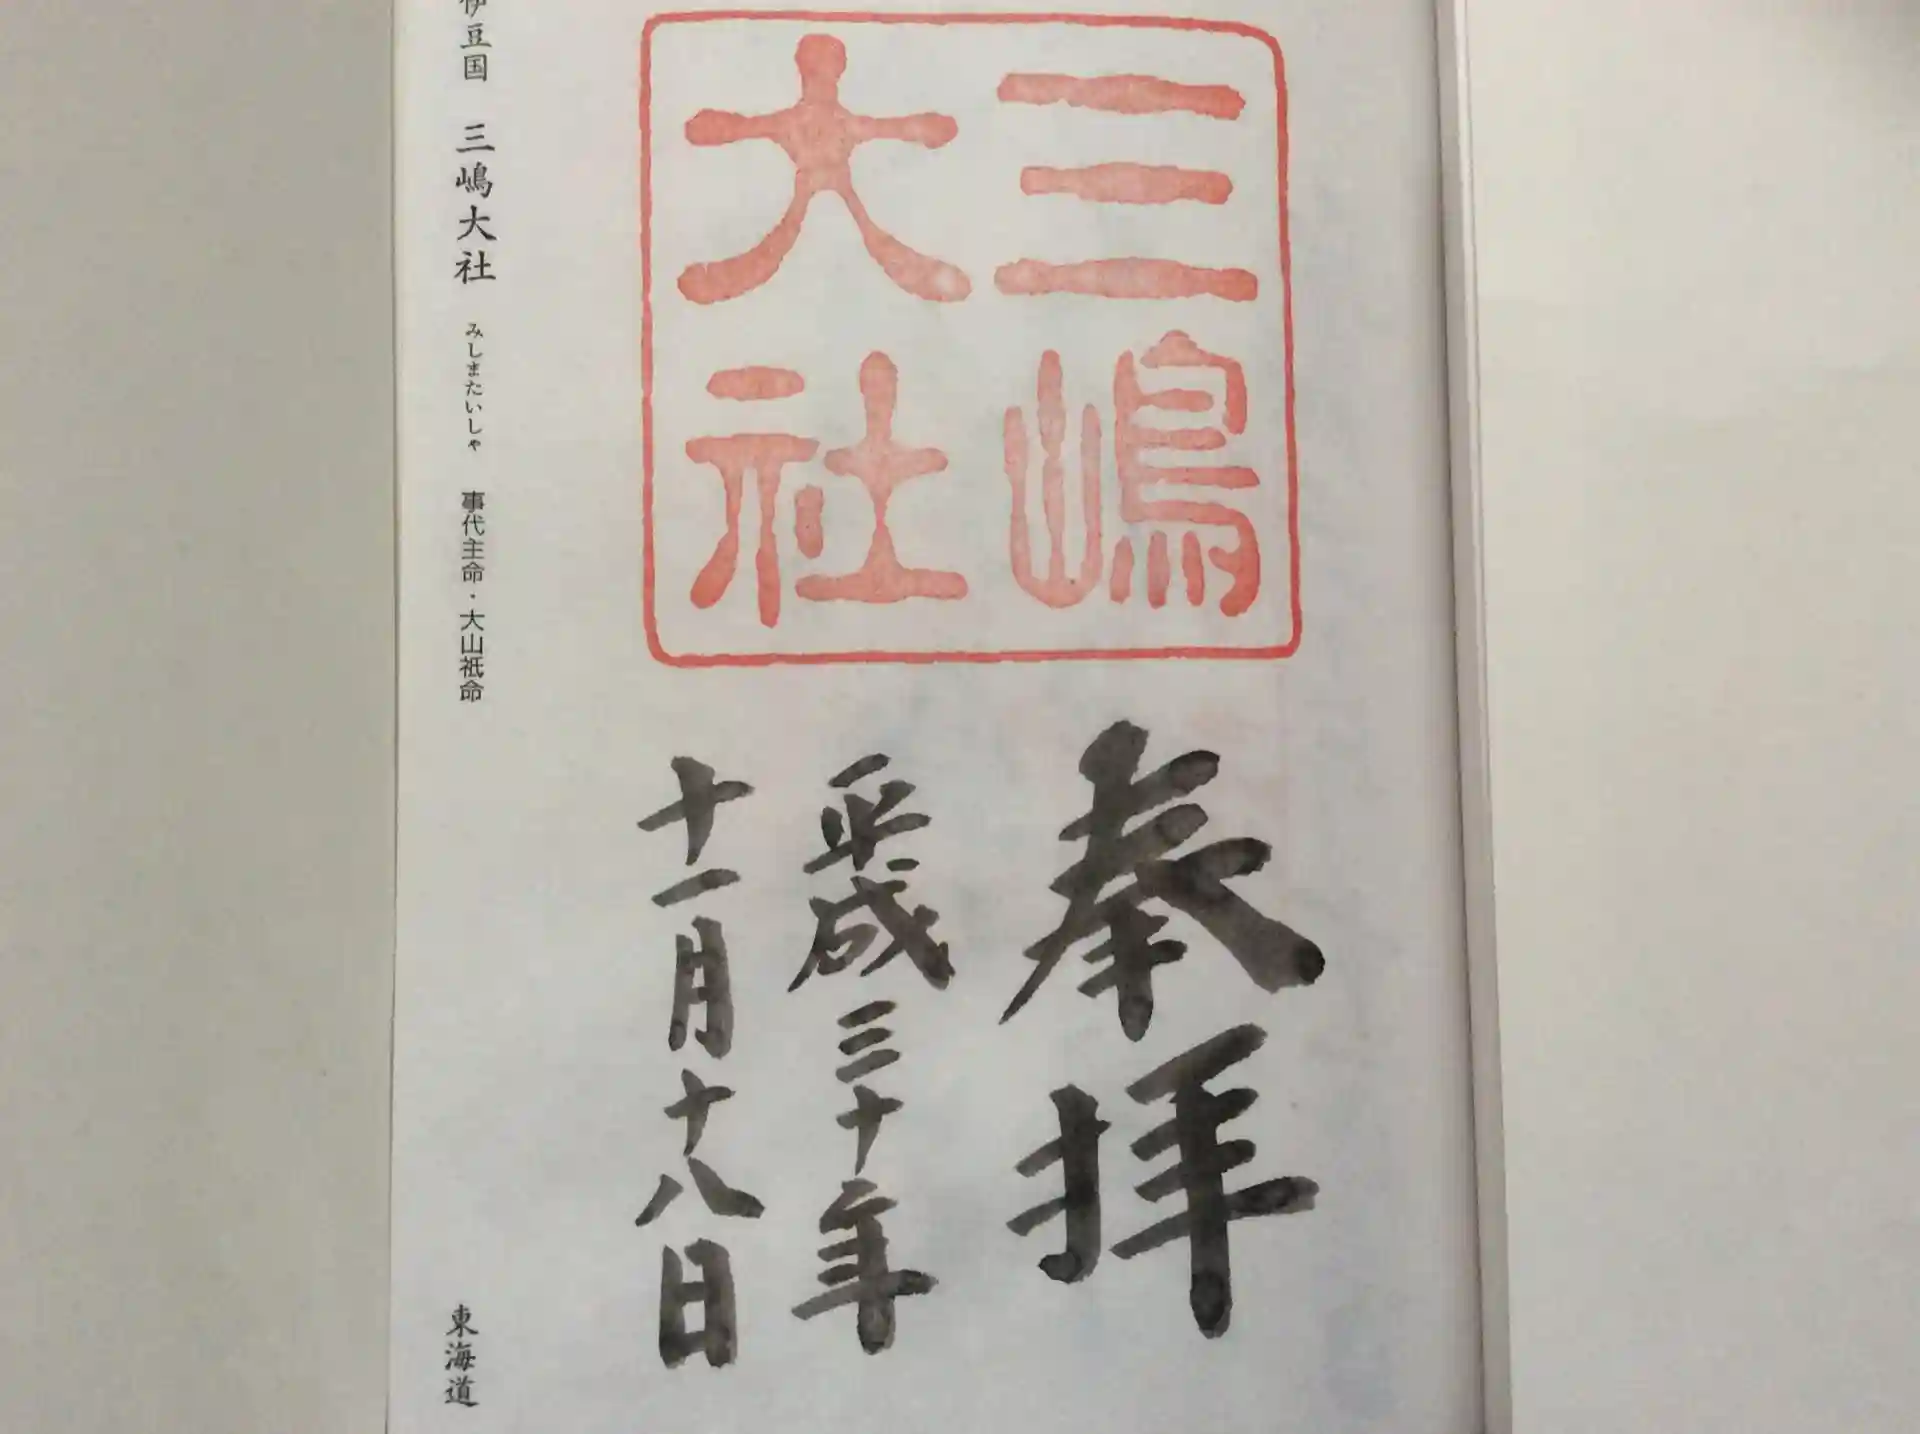 三嶋
大社
奉拝
平成三十年
十一月十八日
伊豆国 三嶋大社 みしまたいしゃ 事代主命・大山祇命
東海道